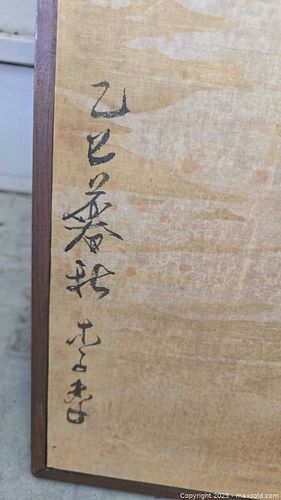 乙巳暮秋 李
Copyright © 2025 - maxsold.com